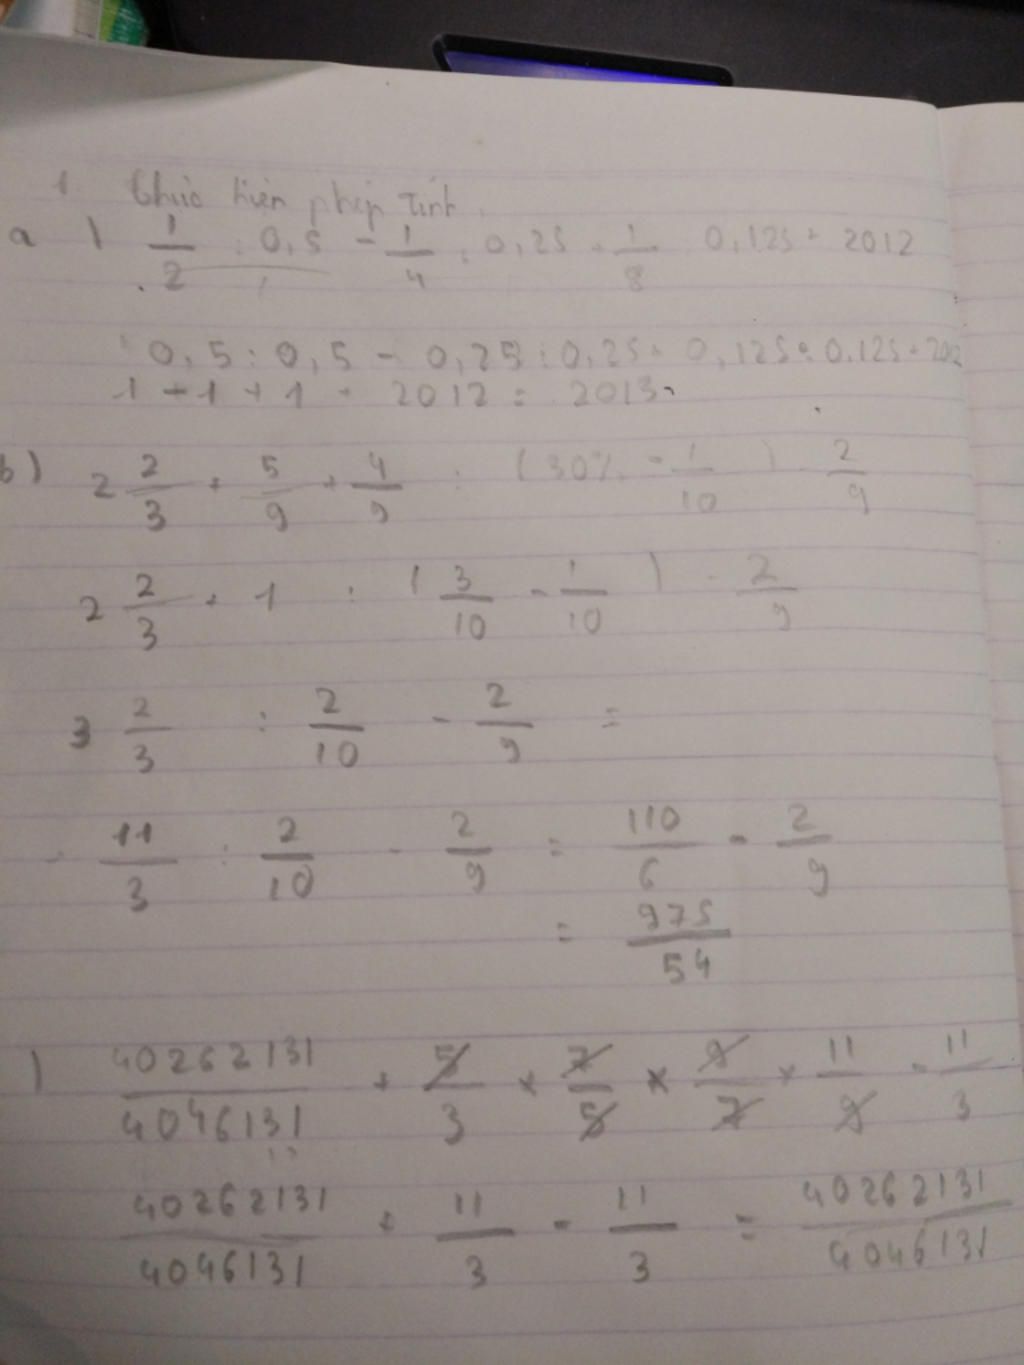 1 Thực hiện phép tính.
a) 1/2 : 0,5 - 1/4 : 0,25 + 1/8 : 0,125 + 2012
0,5 : 0,5 - 0,25 : 0,25 + 0,125 : 0,125 + 2012
1 - 1 + 1 + 2012 = 2013
b) 2 2/3 + 5/9 + 4/9 : (30% - 1/10) - 2/9
2 2/3 + 1 : (3/10 - 1/10) - 2/9
3 2/3 : 2/10 - 2/9 =
11/3 : 2/10 - 2/9 = 110/6 - 2/9
= 975/54
) 40262131/4046131 + 5/3 × 7/5 × 9/7 × 11/9 - 11/3
40262131/4046131 + 11/3 - 11/3 = 40262131/4046131